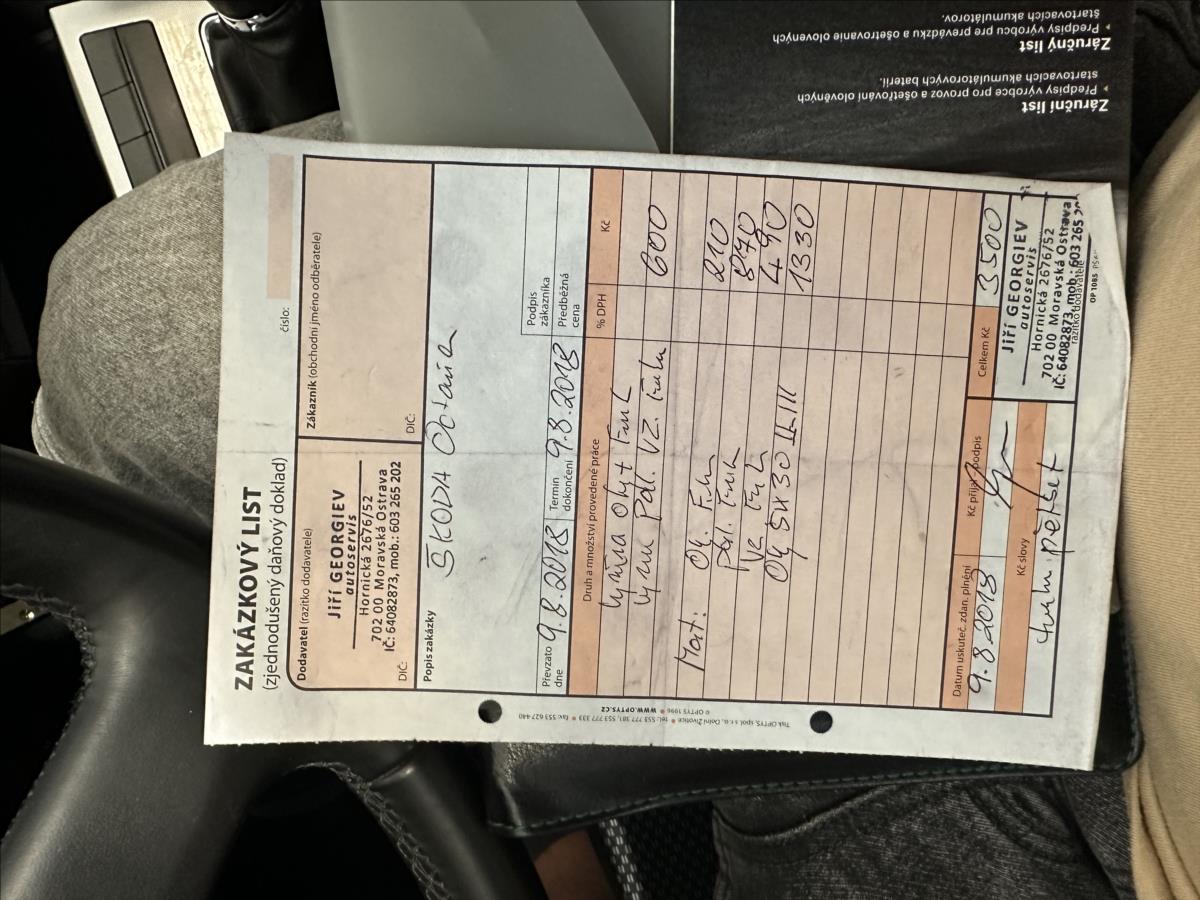 Záruční list
▸ Předpisy výrobce pro provoz a ošetřování olověných
startovacích akumulátorových baterií.
Záručný list
▸ Predpisy výrobcu pre prevádzku a ošetrovanie olovených
štartovacích akumulátorov.
ZAKÁZKOVÝ LIST
(zjednodušený daňový doklad)
číslo:
Dodavatel (razítko dodavatele)
JIŘÍ GEORGIEV
autoservis
Hornická 2676/52
702 00 Moravská Ostrava
IČ: 64082873, mob.: 603 265 202
DIČ:
Zákazník (obchodní jméno odběratele)
DIČ:
Popis zakázky
ŠKODA Octavia
Podpis
zákazníka
Převzato
dne
9.8.2018
Termín
dokončení
9.8.2018
Předběžná
cena
Druh a množství provedené práce
% DPH
Kč
Výměna
600
Mat:
210
870
490
5W30
1330
Datum uskuteč. zdan. plnění
9.8.2018
Kč přijal podpis
Celkem Kč
3500
Kč slovy
JIŘÍ GEORGIEV
autoservis
Hornická 2676/52
702 00 Moravská Ostrava
IČ: 64082873, mob.: 603 265
razítko dodavatele
OP 1085
Tisk OPTYS, spol. s r. o., Dolní Životice • tel.: 553 777 381, 553 777 333 • fax: 553 627 440
© OPTYS 1996 • WWW.OPTYS.CZ